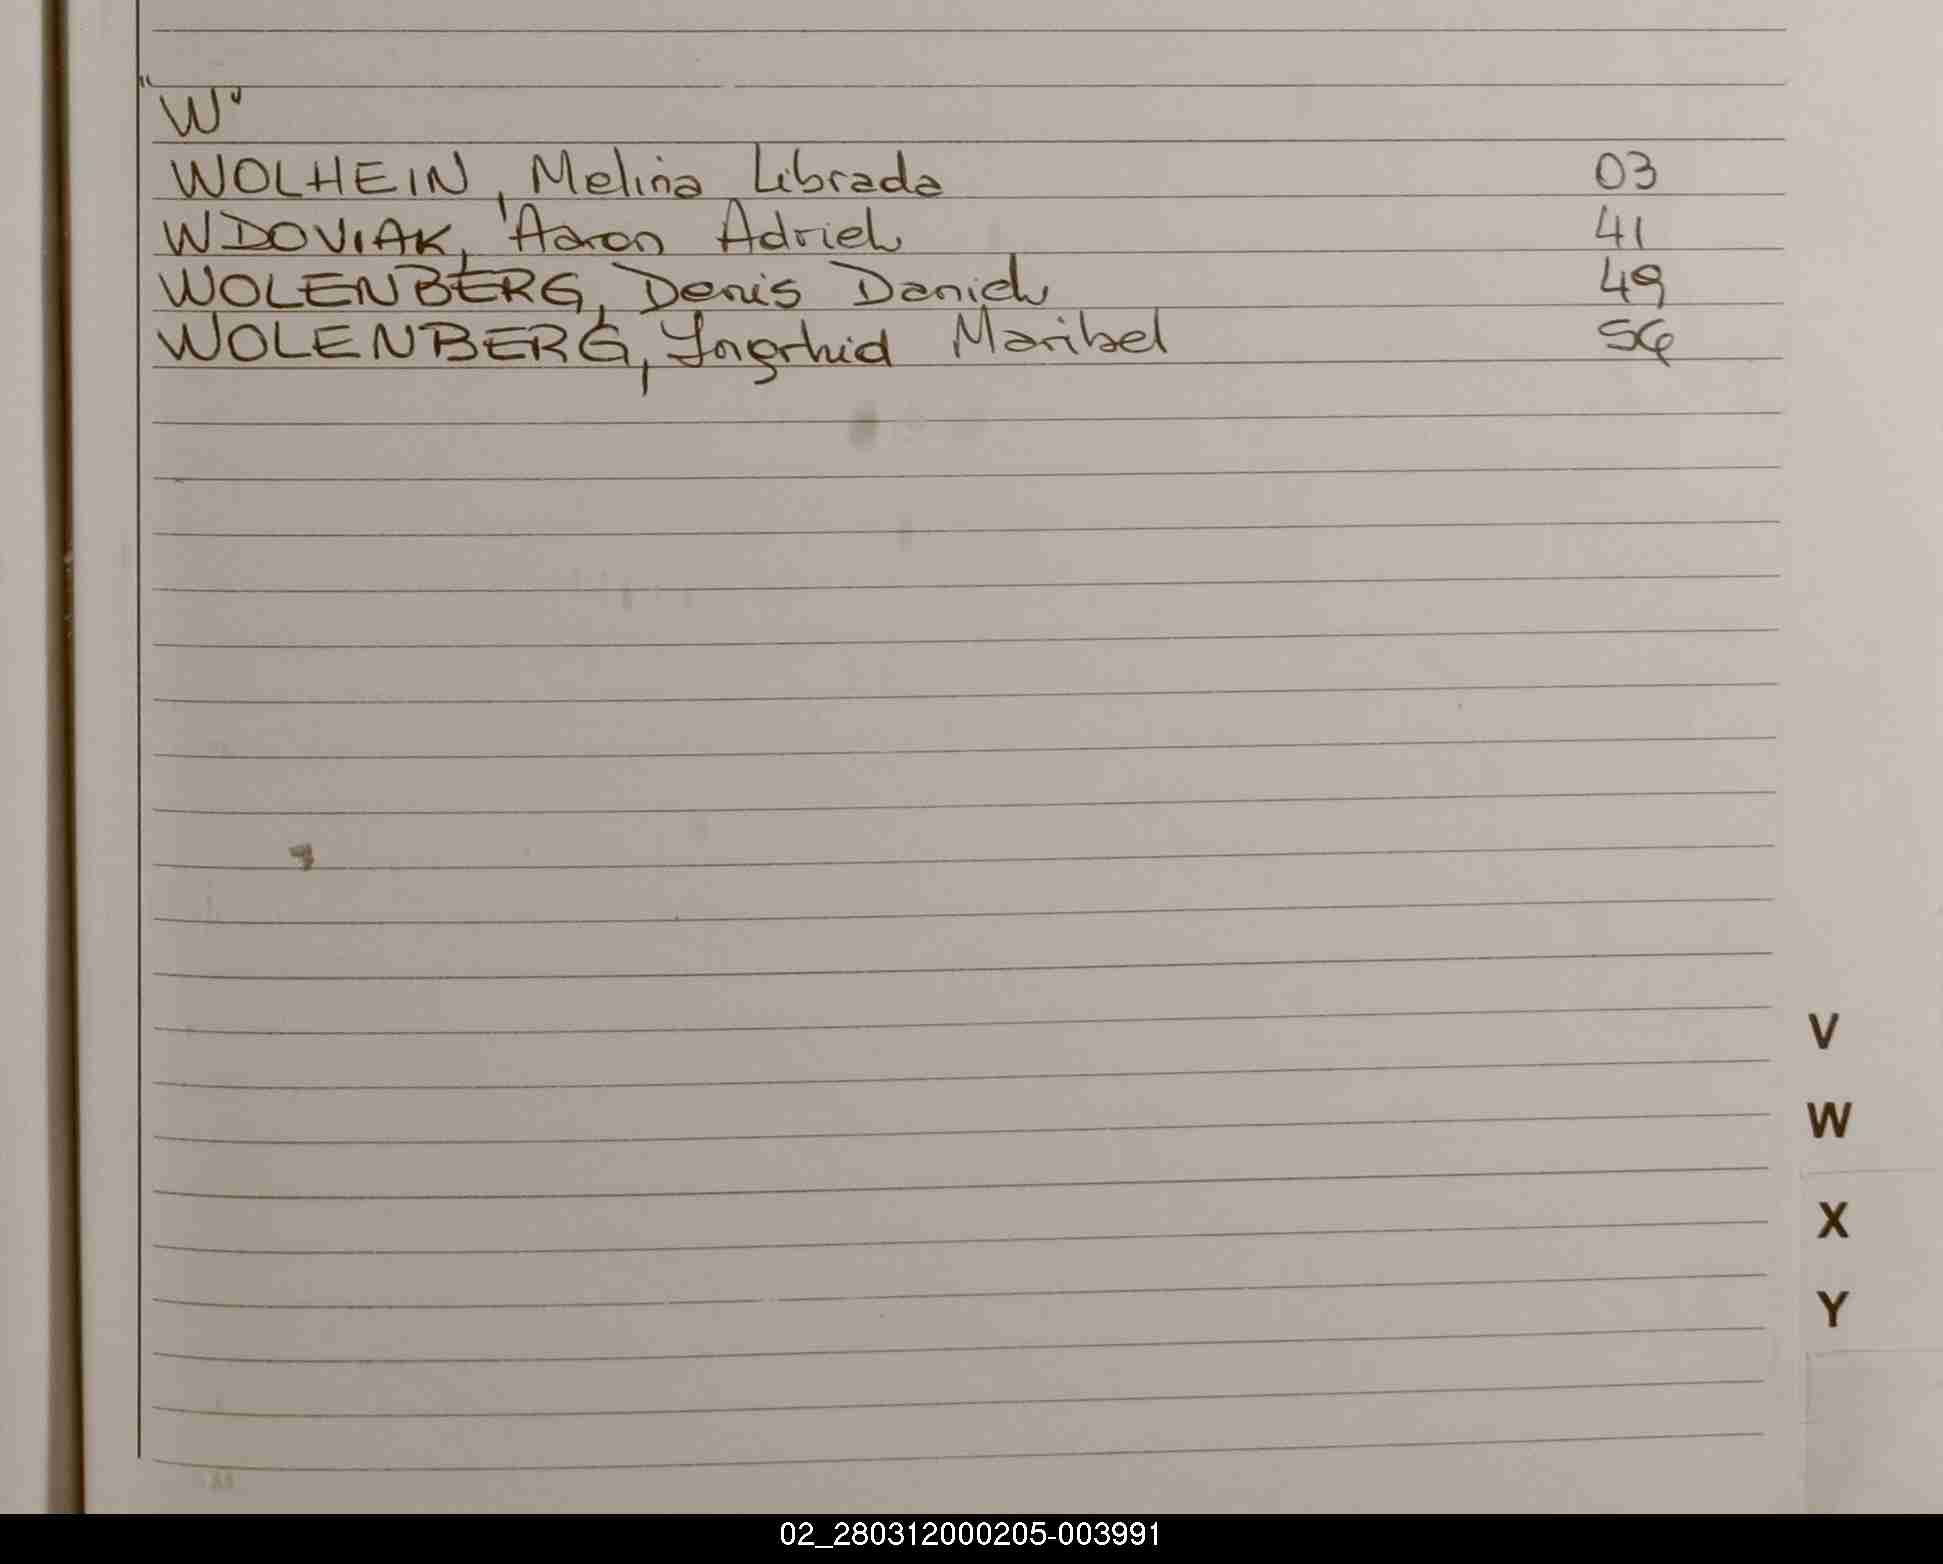 "W"
WOLHEIN, Melina Librada 03
WDOVIAK, Aaron Adriel 41
WOLENBERG, Denis Daniel 49
WOLENBERG, Yngrhid Maribel 56
V
W
X
Y
02_280312000205-003991